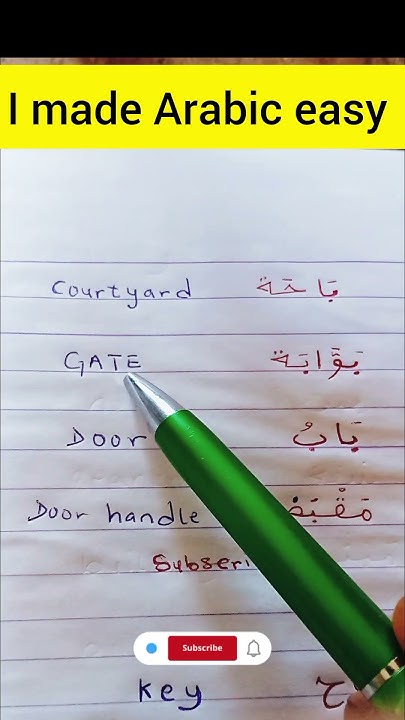 I made Arabic easy
Courtyard بَاحَة
GATE بَوَّابَة
Door بَابُ
Door handle مَقْبَض
Subscri
Subscribe
key ح